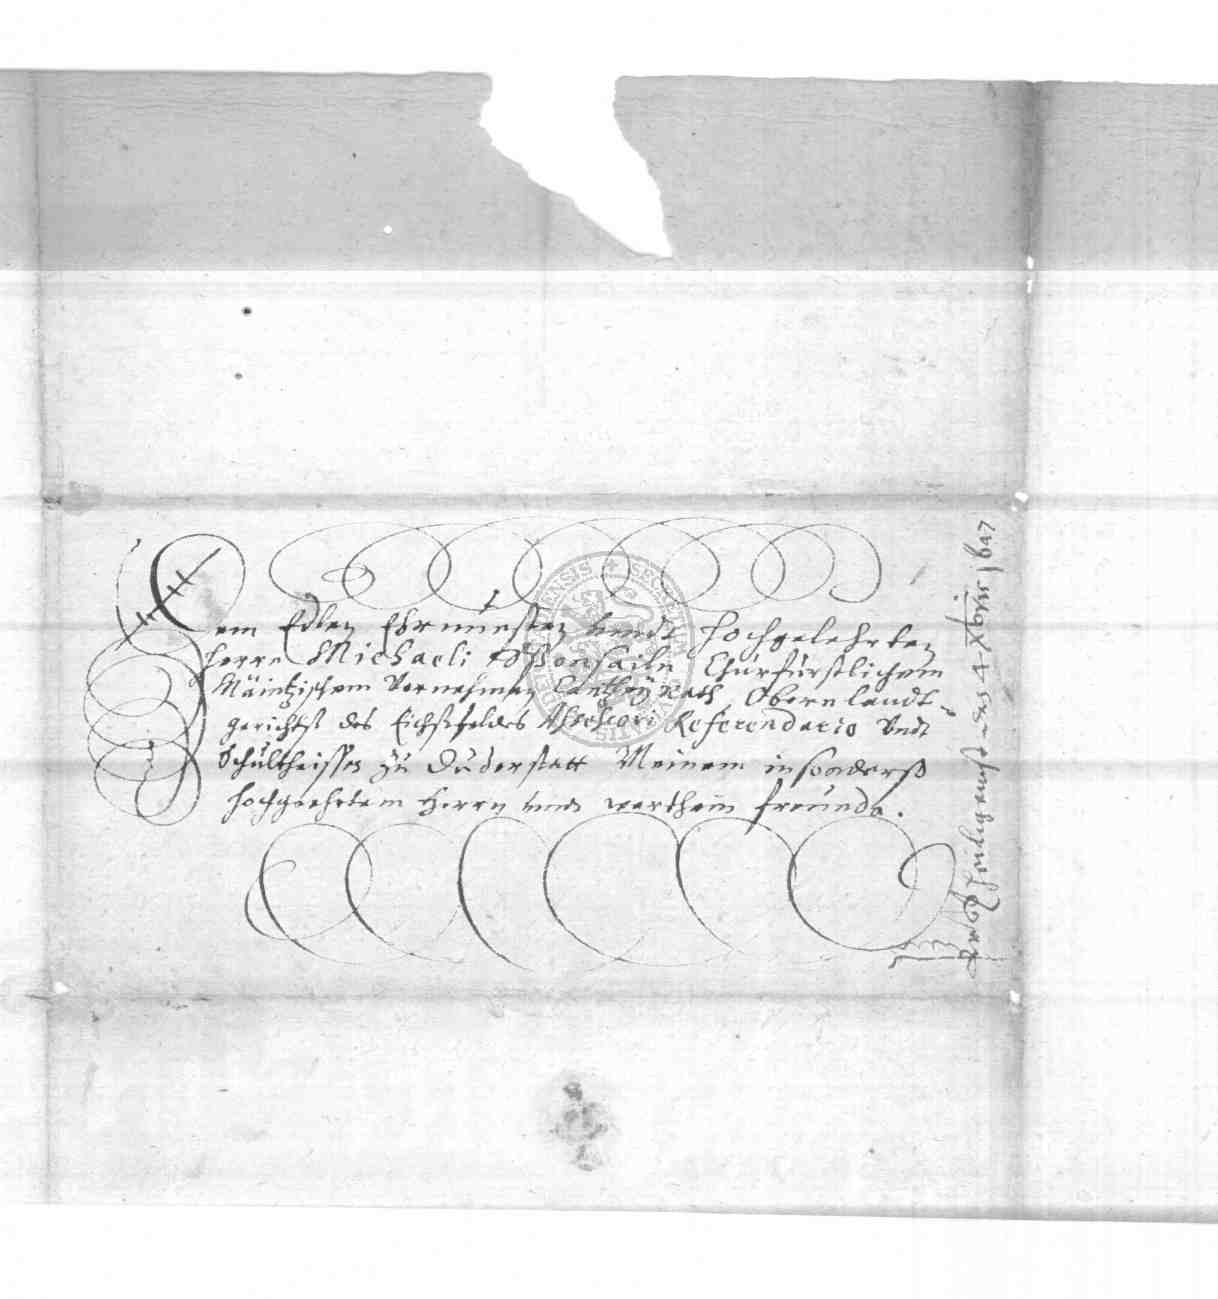 Dem Edlen Ehrnuesten vundt Hochgelehrten
Herrn Michaeli Churfürstlichem
Mäintzischem Vornehmen Rath Obernlandt-
gerichtß des Eichßfeldes Assessori Referendario Vndt
Schultheissen zu Duderstatt Meinem insonderß
Hochgeehrtem Herrn vnd werthem freunde.
Heiligenst. des 4 Xbris 1647